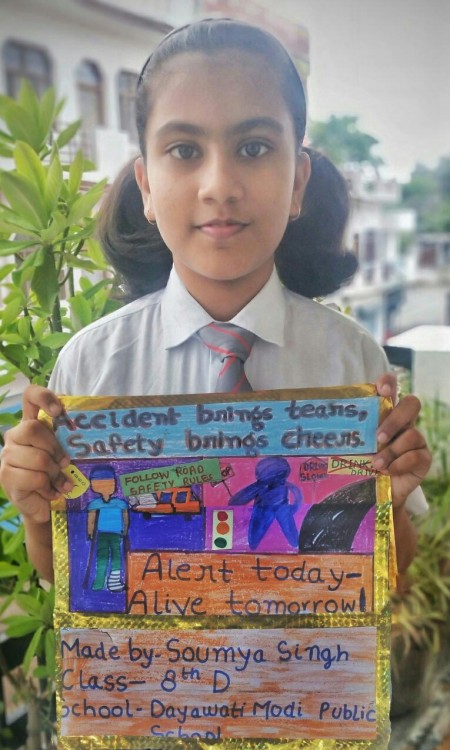 Accident brings tears,
Safety brings cheers.
FOLLOW ROAD
SAFETY RULES
DRINK
Alert today-
Alive tomorrow!
Made by- Soumya Singh
Class- 8th D
School- Dayawati Modi Public
School